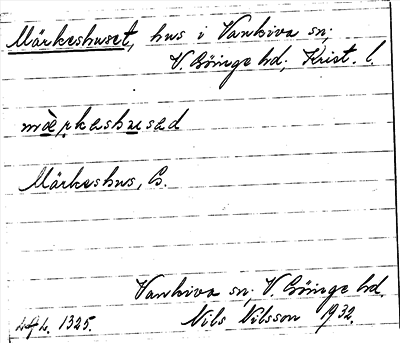 Märkeshuset, hus i Vankiva sn;
V. Göinge hd; Krist. l.
mæ̀ṛkəshu̲səd
Märkeshus, B.
Vankiva sn; V. Göinge hd.
1325. Nils Nilsson 1932.